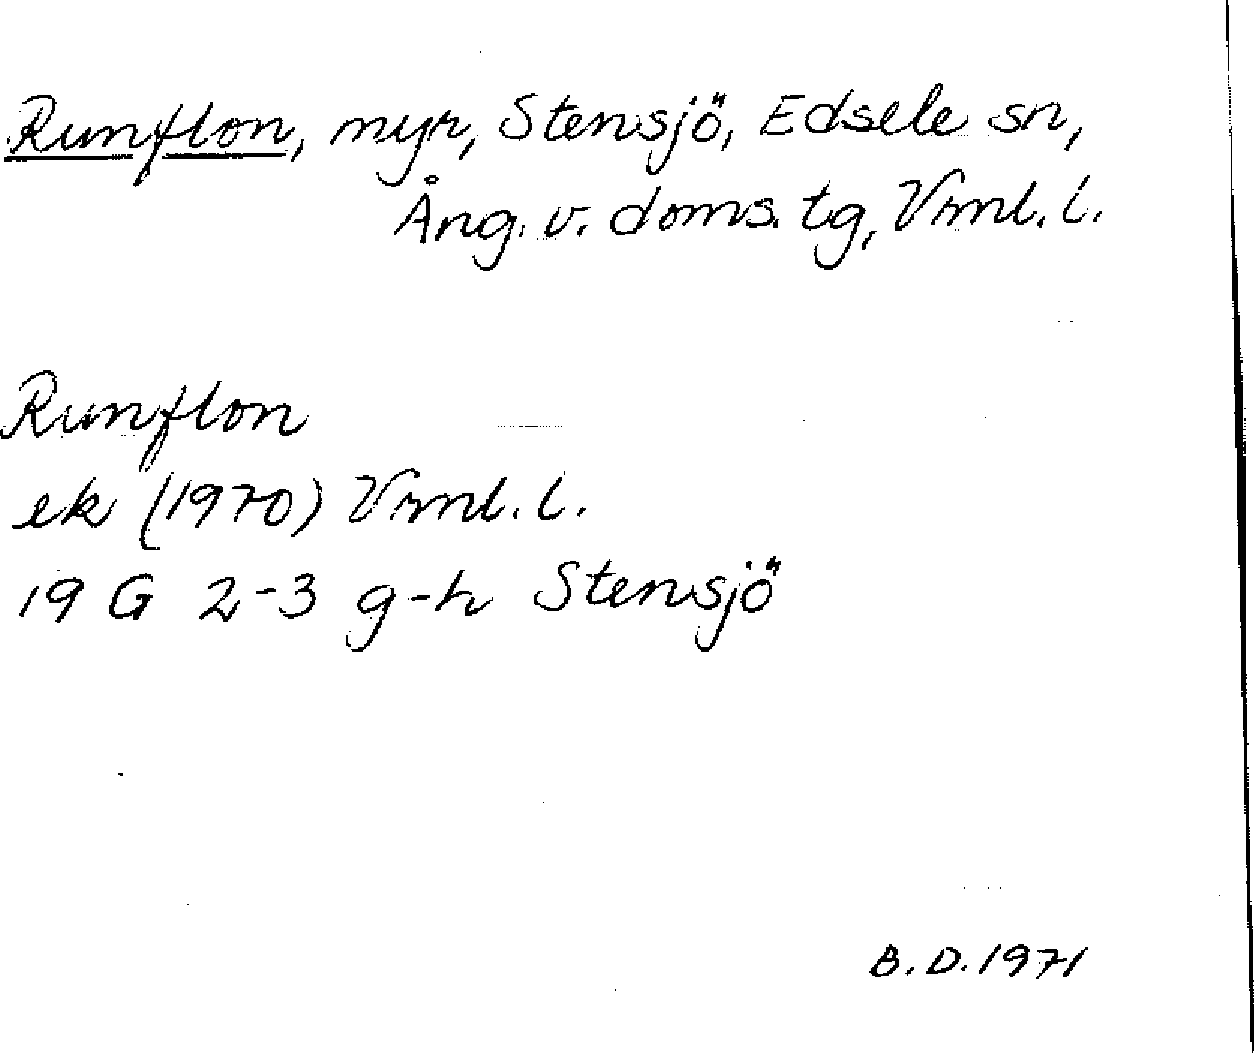 Runflon, myr, Stensjö, Edsele sn,
Ång. v. doms. tg, Vrml. l.
Runflon
ek (1970) Vrml. l.
19 G 2-3 g-h Stensjö
B.D. 1971